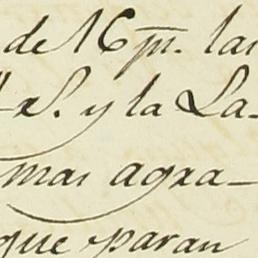 de 16 p.s la
S. y la La-
mas agra-
que paran